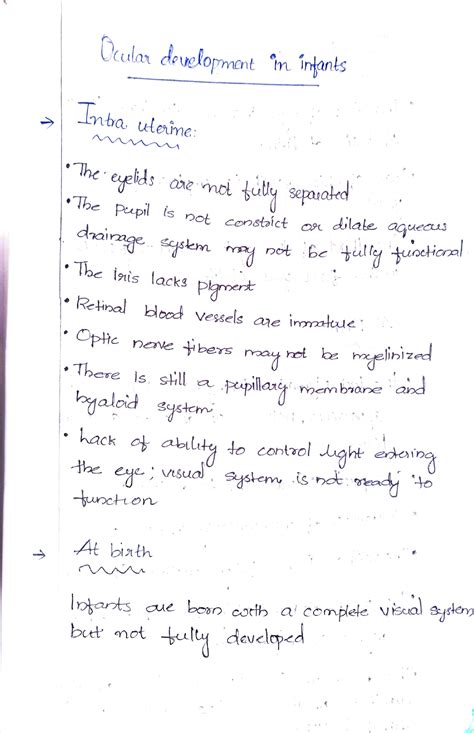 Ocular development in infants
→ Intra uterine:
• The eyelids are not fully separated
• The Pupil is not constrict or dilate aqueous
drainage system may not be fully functional
• The Iris lacks pigment
• Retinal blood vessels are immature:
• Optic nerve fibers may not be myelinized
• There Is still a pupillary membrane and
hyaloid system.
• Lack of ability to control light entering
the eye; visual system is not ready to
function
→ At birth
Infants are born with a complete visual system
but not fully developed